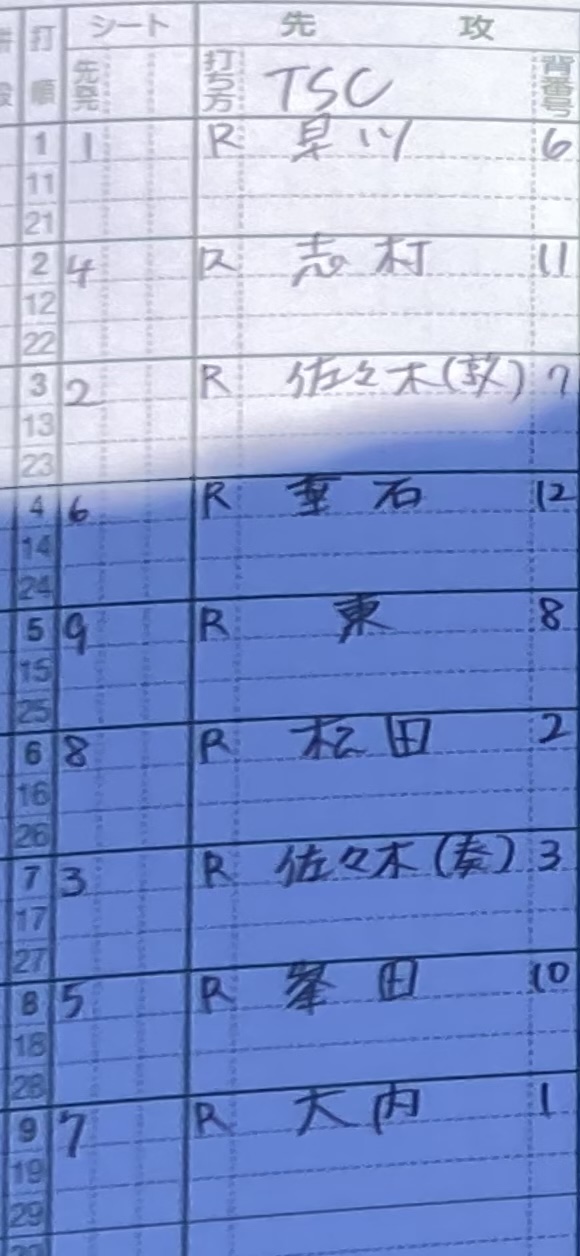 打順 シート 先攻
先発 打ち方 TSC 背番号
1 1 R 早川 6
11
21
2 4 R 志村 11
12
22
3 2 R 佐々木(敦) 7
13
23
4 6 R 重石 12
14
24
5 9 R 東 8
15
25
6 8 R 松田 2
16
26
7 3 R 佐々木(奏) 3
17
27
8 5 R 峯田 10
18
28
9 7 R 大内 1
19
29